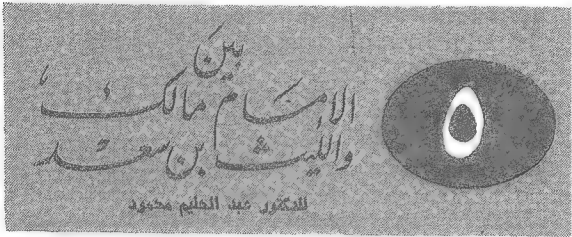 ٥
بين
الإمام مالك
والليث بن سعد
للدكتور عبد الحليم محمود